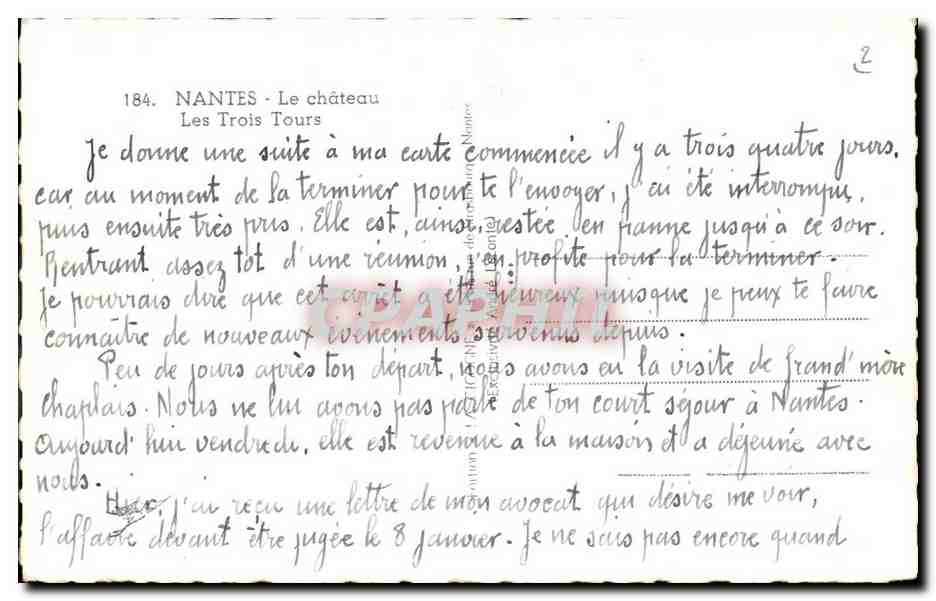 2
184. NANTES - Le château
Les Trois Tours
Je donne une suite à ma carte commencée il y a trois quatre jours,
car, au moment de la terminer pour te l'envoyer, j'ai été interrompu,
puis ensuite très pris. Elle est, ainsi, restée en panne jusqu'à ce soir.
Rentrant assez tôt d'une réunion, j'en profite pour la terminer.
Je pourrais dire que cet arrêt a été heureux puisque je peux te faire
connaître de nouveaux événements survenus depuis.
Peu de jours après ton départ, nous avons eu la visite de Grand'mère
Chaplais. Nous ne lui avons pas parlé de ton court séjour à Nantes.
Aujourd'hui vendredi, elle est revenue à la maison et a déjeuné avec
nous.
Hier, j'ai reçu une lettre de mon avocat qui désire me voir,
l'affaire devant être jugée le 8 Janvier. Je ne sais pas encore quand
CPARAMA